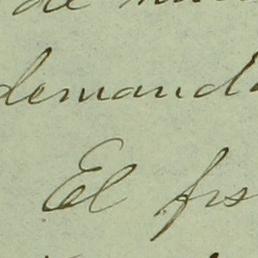 de
demanda
El fis